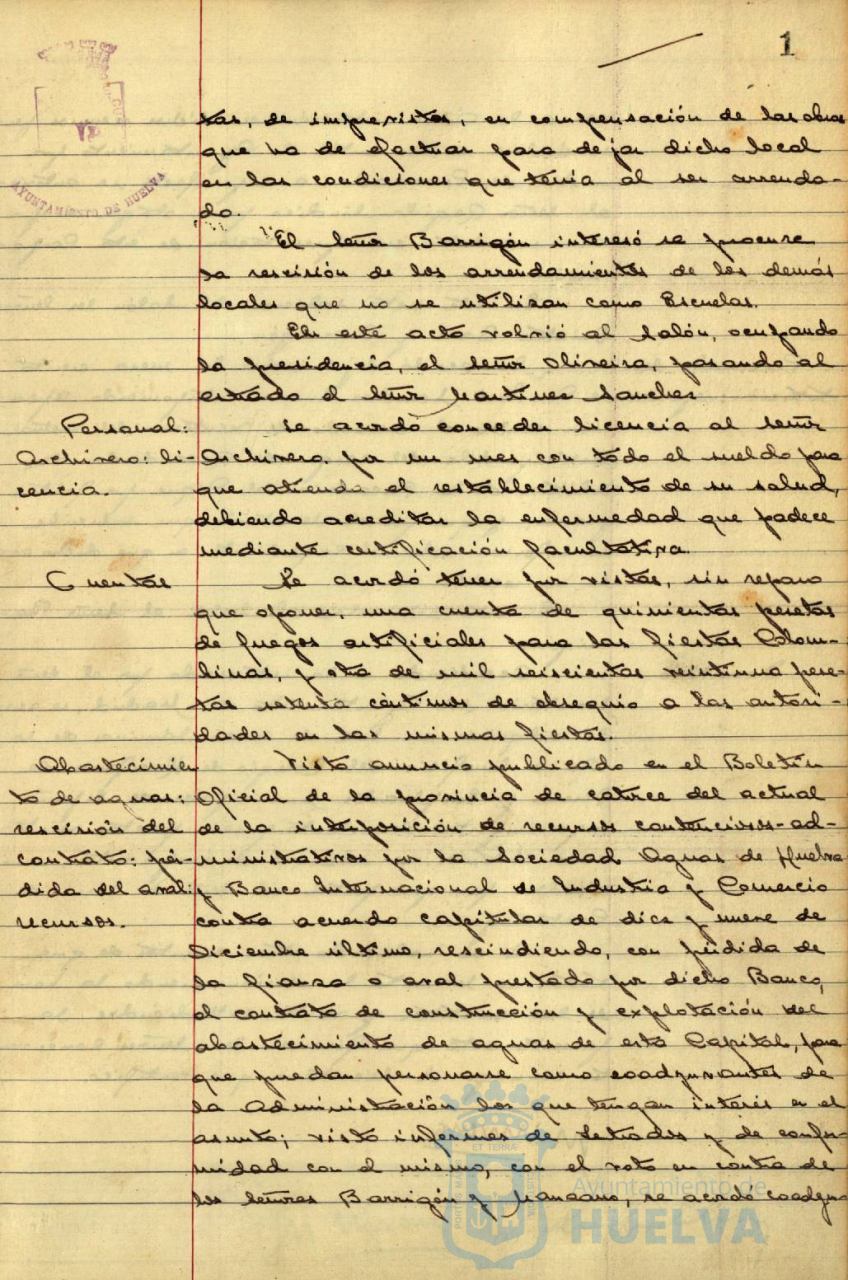 1
AYUNTAMIENTO DE HUELVA
tas, de imprevistos, en compensación de las obras
que ha de efectuar para dejar dicho local
en las condiciones que tenía al ser arrenda-
do.
El señor Barrigón interesó se procure
la rescisión de los arrendamientos de los demás
locales que no se utilizan como Escuelas.
En este acto volvió al salón, ocupando
la presidencia, el señor Oliveira, pasando al
estrado el señor Martínez Sánchez
Personal:
Archivero: li-
cencia.
Se acordó conceder licencia al señor
Archivero, por un mes con todo el sueldo para
que atienda el restablecimiento de su salud,
debiendo acreditar la enfermedad que padece
mediante certificación facultativa.
Cuentas
Se acordó tener por vistas, sin reparo
que oponer, una cuenta de quinientas pesetas
de fuegos artificiales para las fiestas Colom-
binas, y otra de mil seiscientas veintiuna pese-
tas setenta céntimos de obsequio a las autori-
dades en las mismas fiestas.
Abastecimien
to de aguas:
rescisión del
contrato: pér-
dida del aval:
recursos.
Visto anuncio publicado en el Boletín
Oficial de la provincia de catorce del actual
de la interposición de recursos contenciosos-ad-
ministrativos por la Sociedad Aguas de Huelva
y Banco Internacional de Industria y Comercio
contra acuerdo capitular de diez y nueve de
Diciembre último, rescindiendo, con pérdida de
la fianza o aval prestado por dicho Banco,
el contrato de construcción y explotación del
abastecimiento de aguas de esta Capital, para
que puedan personarse como coadyuvantes de
la Administración los que tengan interés en el
asunto; visto informes de Letrados y de confor-
midad con el mismo, con el voto en contra de
los señores Barrigón y Manzano, se acordó coadyu-
Ayuntamiento de
HUELVA